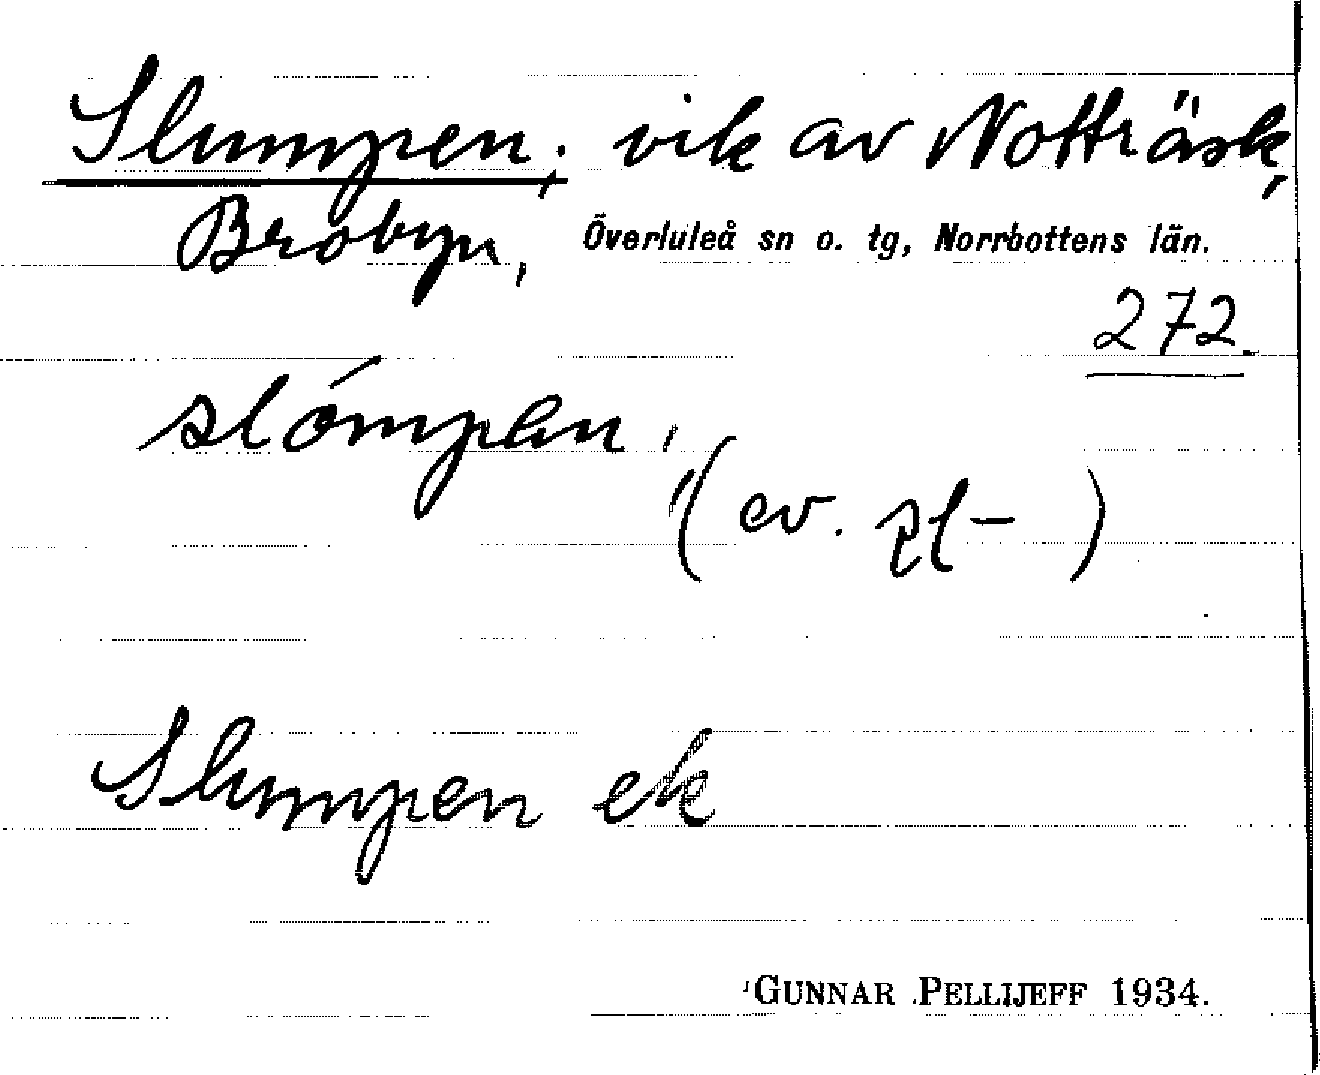 Slumpen; vik av Notträsk,
Brobyn, Överluleå sn o. tg, Norrbottens län.
272.
slómpən,
(ev. sl-)
Slumpen ek
GUNNAR PELLIJEFF 1934.